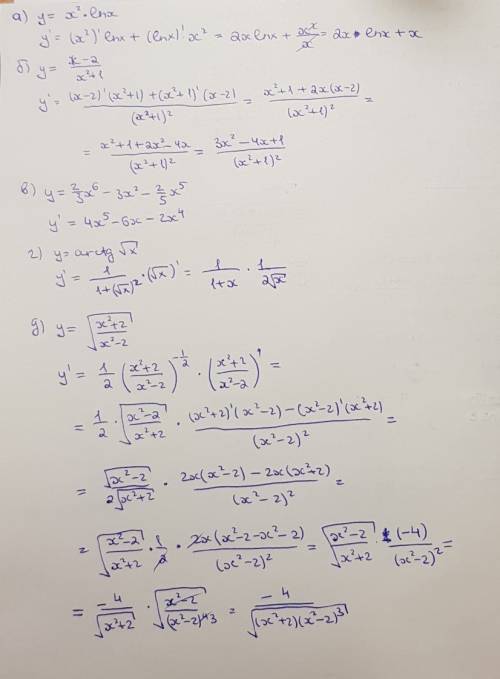 а) y = x²·lnx
y' = (x²)' lnx + (lnx)' x² = 2x lnx + x²/x = 2x·lnx + x
б) y = (x-2)/(x²+1)
y' = ((x-2)'(x²+1) + (x²+1)'(x-2))/(x²+1)² = (x²+1+2x(x-2))/(x²+1)² =
= (x²+1+2x²-4x)/(x²+1)² = (3x²-4x+1)/(x²+1)²
в) y = 2/3 x⁶ - 3x² - 2/5 x⁵
y' = 4x⁵ - 6x - 2x⁴
г) y = arctg √x
y' = 1/(1+(√x)²) · (√x)' = 1/(1+x) · 1/(2√x)
д) y = √((x²+2)/(x²-2))
y' = 1/2 · ((x²+2)/(x²-2))^(-1/2) · ((x²+2)/(x²-2))' =
= 1/2 · √((x²-2)/(x²+2)) · ((x²+2)'(x²-2) - (x²-2)'(x²+2))/(x²-2)² =
= √(x²-2)/(2√(x²+2)) · (2x(x²-2) - 2x(x²+2))/(x²-2)² =
= √((x²-2)/(x²+2)) · 1/2 · 2x(x²-2-x²-2)/(x²-2)² = √((x²-2)/(x²+2)) · (-4)/(x²-2)² =
= -4/√(x²+2) · √((x²-2)/(x²-2)⁴³) = -4/√((x²+2)(x²-2)³)